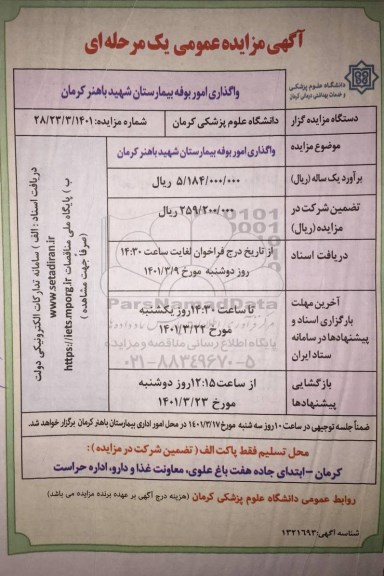 آگهی مزایده عمومی یک مرحله ای
دانشگاه علوم پزشکی
و خدمات بهداشتی درمانی کرمان
واگذاری امور بوفه بیمارستان شهید باهنر کرمان
دستگاه مزایده گزار
دانشگاه علوم پزشکی کرمان
شماره مزایده: ۲۸/۲۳/۳/۱۴۰۱
موضوع مزایده
واگذاری امور بوفه بیمارستان شهید باهنر کرمان
برآورد یک ساله (ریال)
۵/۱۸۴/۰۰۰/۰۰۰ ریال
تضمین شرکت در
مزایده (ریال)
۲۵۹/۲۰۰/۰۰۰ ریال
دریافت اسناد
از تاریخ درج فراخوان لغایت ساعت ۱۴:۳۰
روز دوشنبه مورخ ۱۴۰۱/۳/۹
آخرین مهلت
بارگزاری اسناد و
پیشنهادها در سامانه
ستاد ایران
تا ساعت ۱۴:۳۰ روز یکشنبه
مورخ ۱۴۰۱/۳/۲۲
بازگشایی
پیشنهادها
از ساعت ۱۲:۱۵ روز دوشنبه
مورخ ۱۴۰۱/۳/۲۳
دریافت اسناد : الف ) سامانه تدارکات الکترونیکی دولت
www.setadiran.ir
ب ) پایگاه ملی مناقصات https://iets.mporg.ir
(صرفاً جهت مشاهده )
ParsNamadData
پایگاه اطلاع رسانی مناقصه و مزایده
۰۲۱-۸۸۳۴۹۶۷۰-۵
ضمناً جلسه توجیهی در ساعت ۱۰ روز سه شنبه مورخ ۱۴۰۱/۳/۱۷ در محل امور اداری بیمارستان باهنر کرمان برگزار خواهد شد.
محل تسلیم فقط پاکت الف ( تضمین شرکت در مزایده ) :
کرمان – ابتدای جاده هفت باغ علوی، معاونت غذا و دارو، اداره حراست
روابط عمومی دانشگاه علوم پزشکی کرمان (هزینه درج آگهی بر عهده برنده مزایده می باشد)
شناسه آگهی: ۱۳۲۱۶۹۳